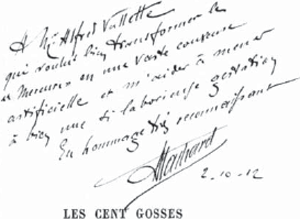 A Mr Alfred Vallette
qui voulut bien transformer le
"Mercure" en une vaste couveuse
artificielle et m'aider à mener
à bien une si laborieuse gestation
En hommage très reconnaissant
AMachard
2-10-12
LES CENT GOSSES